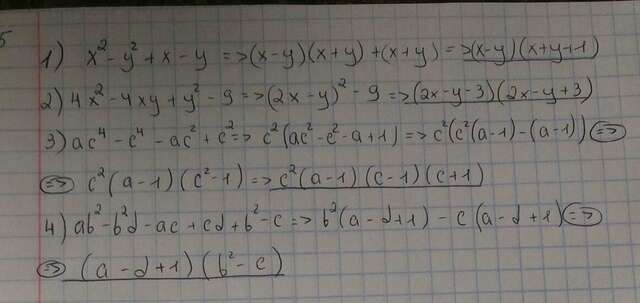 5
1) x² - y² + x - y => (x-y)(x+y) + (x+y) => (x-y)(x+y+1)
2) 4x² - 4xy + y² - 9 => (2x-y)² - 9 => (2x-y-3)(2x-y+3)
3) ac⁴ - c⁴ - ac² + c² => c²(ac² - c² - a + 1) => c²(c²(a-1) - (a-1)) =>
=> c²(a-1)(c²-1) => c²(a-1)(c-1)(c+1)
4) ab² - b²d - ac + cd + b² - c => b²(a-d+1) - c(a-d+1) =>
=> (a-d+1)(b²-c)